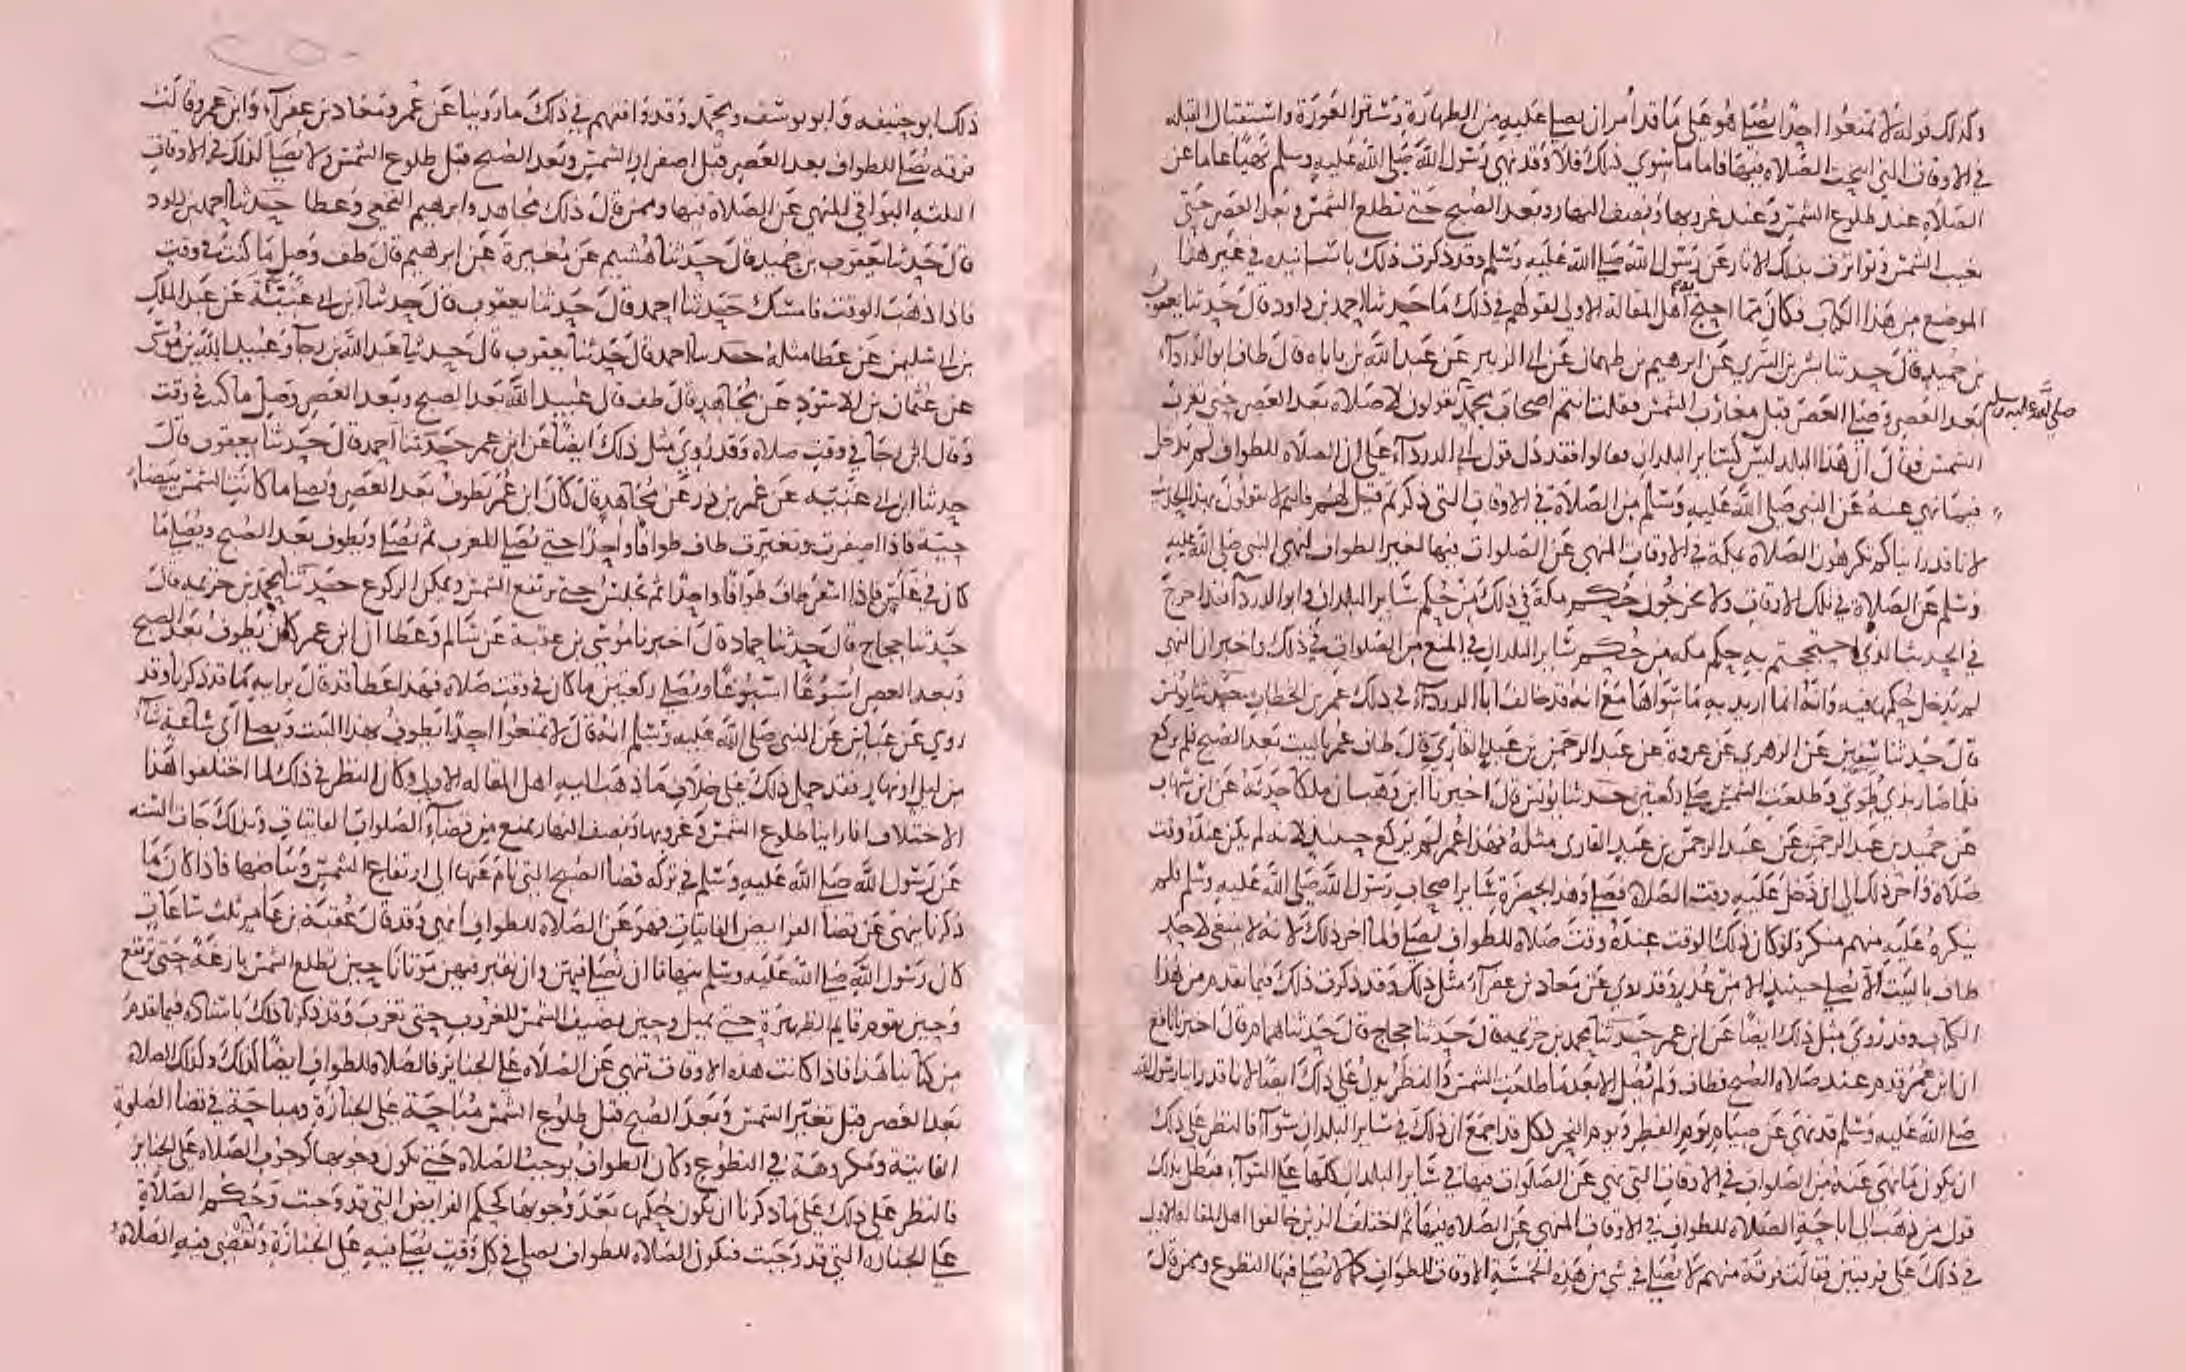 وكذلك قوله لا تمنعوا احدا يصلي هو على ما قد امر ان يصلي عليه من الطهارة وستر العورة واستقبال القبله
في الاوقات التي ابيحت الصلاه فيها فاما ما سوى ذلك فلا وقد نهى رسول الله صلى الله عليه وسلم نهيا عاما عن
الصلاه عند طلوع الشمس وعند غروبها ونصف النهار وبعد الصبح حتى تطلع الشمس وبعد العصر حتى
تغيب الشمس وتواترت بذلك الاثار عن رسول الله صلى الله عليه وسلم وقد ذكرت ذلك باسانيده في غير هذا
الموضع من هذا الكتاب فكان مما احتج به اهل المقاله الاولى لقولهم في ذلك ما حدثنا احمد بن داود قال حدثنا يعقوب
بن حميد قال حدثنا بشر بن السري عن ابرهيم بن طهمان عن ابي الزبير عن عبد الله بن باباه قال طاف ابو الدرداء
بعد العصر وصلى العصر قبل مغارب الشمس فقلت انتم اصحاب محمد تقولون لا صلاه بعد العصر حتى تغرب
صلى الله عليه وسلم
الشمس فقال ان هذا البلد ليس كسائر البلدان فقالوا فقد دل قول ابي الدرداء على ان الصلاه للطواف لم يدخل
فيما نهي عنه عن النبي صلى الله عليه وسلم من الصلاة في الاوقات التي ذكرتم قبل لهم فانتم لا تقولون بهذا الحديث
لانا قد رايناكم تكرهون الصلاه بمكة في الاوقات المنهي عن الصلوات فيها لغير الطواف لنهي النبي صلى الله عليه
وسلم عن الصلاه في تلك الاوقات ولا تخرجون حكم مكة في ذلك من حكم سائر البلدان وابو الدرداء فقد اخرج
في الحديث الذي احتججتم به حكم مكه من حكم سائر البلدان في المنع من الصلوات في ذلك واخبر ان النهي
لم يدخل حكمها فيه وانه انما اريد به ما سواها مع انه قد خالف ابا الدرداء في ذلك عمر بن الخطاب حدثنا يونس
قال حدثنا سفين عن الزهري عن عروة عن عبد الرحمن بن عبد القاري قال طاف عمر بالبيت بعد الصبح فلم يركع
فلما صار بذي طوى وطلعت الشمس صلى ركعتين حدثنا يونس قال اخبرنا ابن وهب ان ملكا حدثه عن ابن شهاب
عن حميد بن عبد الرحمن عن عبد الرحمن بن عبد القاري مثله فهذا عمر لم يركع حينئذ لانه لم يكن عنده وقت
صلاه واخر ذلك الى ان دخل عليه وقت الصلاه فصلى وهذا بحضرة سائر اصحاب رسول الله صلى الله عليه وسلم فلم
ينكره عليه منهم منكر ولو كان ذلك الوقت عنده وقت صلاه للطواف لصلى ولما اخر ذلك لانه لا ينبغي لاحد
طاف بالبيت الا يصلي حينئذ الا من عذر وقد روي عن معاذ بن عفراء مثل ذلك وقد ذكرت ذلك فيما تقدم من هذا
الكتاب وقد روي مثل ذلك ايضا عن ابن عمر حدثنا محمد بن خزيمه قال حدثنا حجاج قال حدثنا همام قال اخبرنا نافع
ان ابن عمر قدم عند صلاه الصبح فطاف ولم يصل الا بعد ما طلعت الشمس والنظر يدل على ذلك ايضا لانا قد راينا رسول الله
صلى الله عليه وسلم قد نهى عن صيام يوم الفطر ويوم النحر فكل قد اجمع ان ذلك في سائر البلدان سواء فالنظر على ذلك
ان يكون ما نهى عنه من الصلوات في الاوقات التي نهي عن الصلوات فيها في سائر البلدان كلها على السواء فبطل بذلك
قول من ذهب الى اباحة الصلاه للطواف في الاوقات المنهي عن الصلاه فيها ثم اختلف الذين خالفوا اهل المقاله الاولى
في ذلك على فرقتين فقالت فرقة منهم لا يصلى في شي من هذه الخمسة الاوقات للطواف كما لا يصلى فيها التطوع وممن قال
ذلك ابو حنيفه وابو يوسف ومحمد وقد وافقهم في ذلك ما روينا عن عمر ومعاذ بن عفراء وابن عمر وقالت
فرقه يصلى للطواف بعد العصر قبل اصفرار الشمس وبعد الصبح قبل طلوع الشمس ولا يصلى لذلك في الاوقات
الثلثه البواقي المنهي عن الصلاة فيها وممن قال ذلك مجاهد وابرهيم النخعي وعطا حدثنا احمد بن داود
قال حدثنا يعقوب بن حميد قال حدثنا هشيم عن مغيرة عن ابرهيم قال طف وصل ما كنت في وقت
فاذا ذهب الوقت فامسك حدثنا احمد قال حدثنا يعقوب قال حدثنا ابن ابي غنية عن عبد الملك
بن ابي سليمن عن عطا مثله حدثنا احمد قال حدثنا يعقوب قال حدثنا عبد الله بن رجا وعبيد الله بن موسى
عن عثمان بن الاسود عن مجاهد قال طف قال عبيد الله بعد الصبح وبعد العصر وصل ما كنت في وقت
وقال ابن رجا في وقت صلاه وقد روي مثل ذلك ايضا عن ابن عمر حدثنا احمد قال حدثنا يعقوب قال
حدثنا ابن ابي غنية عن عمر بن ذر عن مجاهد قال كان ابن عمر يطوف بعد العصر ويصلي ما كانت الشمس بيضاء
حية فاذا اصفرت وتغيرت طاف طوافا واحدا حتى يصلي المغرب ثم يصلي ويطوف بعد الصبح ويصلي ما
كان في غلس فاذا اسفر طاف طوافا واحدا ثم يجلس حتى ترتفع الشمس ويمكن الركوع حدثنا محمد بن خزيمه قال
حدثنا حجاج قال حدثنا حماد قال اخبرنا موسى بن عقبة عن سالم وعطا ان ابن عمر كان يطوف بعد الصبح
وبعد العصر اسبوعا اسبوعا ويصلي ركعتين ما كان في وقت صلاه فهذا عطا قد قال برايه ما قد ذكرنا وقد
روي عن ابن عباس عن النبي صلى الله عليه وسلم انه قال لا تمنعوا احدا يطوف بهذا البيت ويصلي اي ساعة شاء
من ليل او نهار فقد حمل ذلك على خلاف ما ذهب اليه اهل المقاله الاولى وكان النظر في ذلك لما اختلفوا هذا
الاختلاف انا راينا طلوع الشمس وغروبها ونصف النهار يمنع من قضاء الصلوات الفائتات وبذلك جات السنه
عن رسول الله صلى الله عليه وسلم في تركه قضا الصبح التي نام عنها الى ارتفاع الشمس وبياضها فاذا كان ما
ذكرنا ينهى عن قضا الفرايض الفائتات فهو عن الصلاة للطواف انهى وقد قال عقبة بن عامر ثلث ساعات
كان رسول الله صلى الله عليه وسلم ينهانا ان نصلي فيهن وان نقبر فيهن موتانا حين تطلع الشمس بازغة حتى ترتفع
وحين يقوم قايم الظهيرة حتى تميل وحين تضيف الشمس للغروب حتى تغرب وقد ذكرنا ذلك باسناده فيما تقدم
من كتابنا هذا فاذا كانت هذه الاوقات تنهى عن الصلاه على الجنايز فالصلاة للطواف ايضا كذلك وكذلك الصلاة
بعد العصر قبل تغير الشمس وبعد الصبح قبل طلوع الشمس مباحة على الجنازة ومباحة في قضا الصلوة
الفائتة ومكروهة في التطوع وكان الطواف يوجب الصلاة حتى تكون وجوبها كوجوب الصلاه على الجنايز
فالنظر على ذلك على ما ذكرنا ان يكون حكمها بعد وجوبها كحكم الفرايض التي قد وجبت وحكم الصلاة
على الجنازه التي قد وجبت فتكون الصلاه للطواف تصلى في كل وقت يصلى فيه على الجنازة وتقضى فيه الصلاة